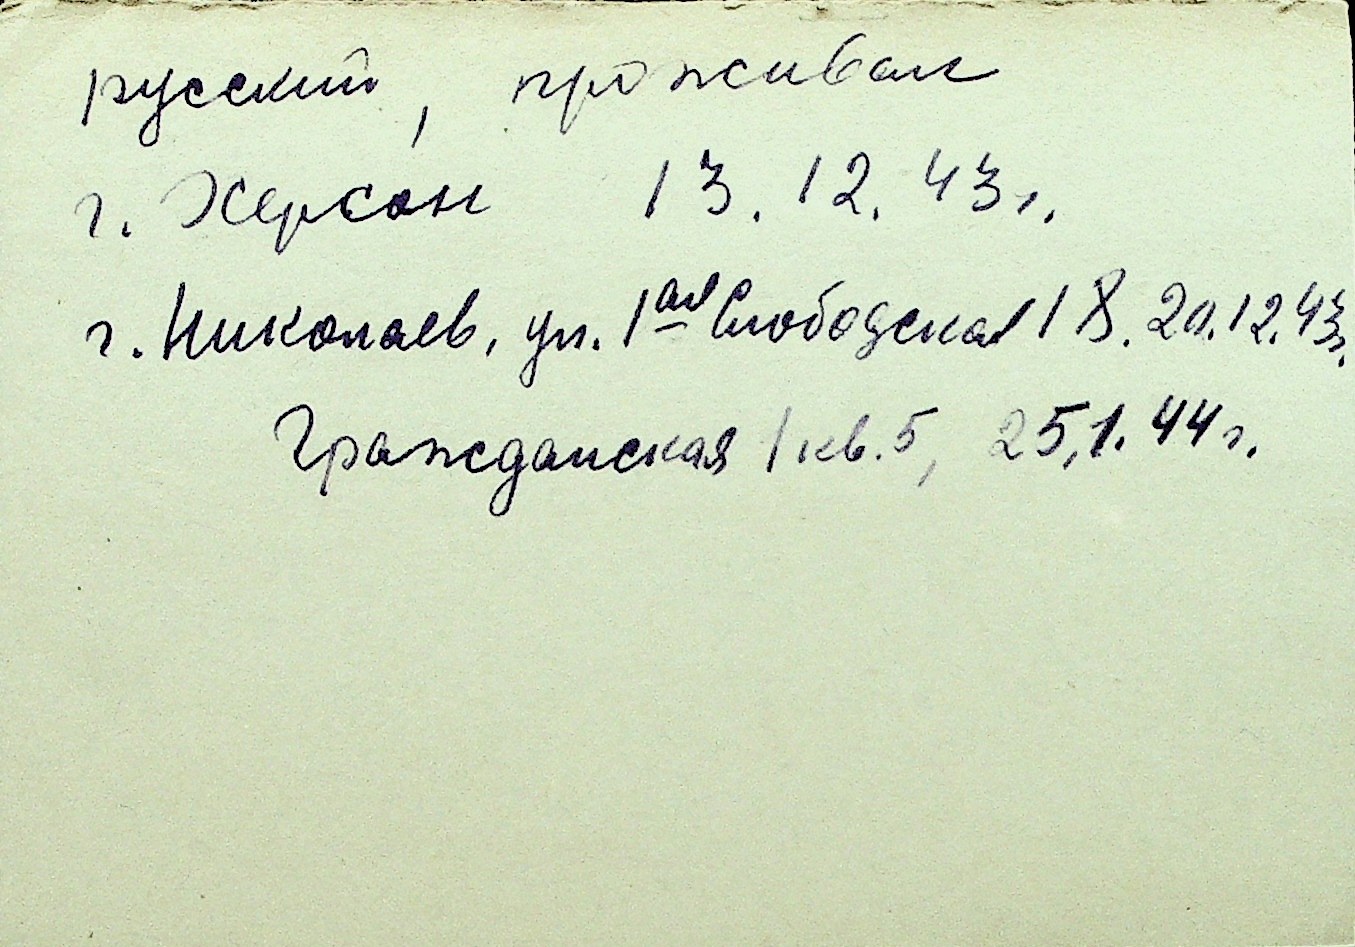 русский, проживал
г. Херсон 13.12.43г.
г. Николаев, ул. 1ая Слободская 18. 20.12.43г.
Гражданская 1 кв. 5, 25,1.44г.